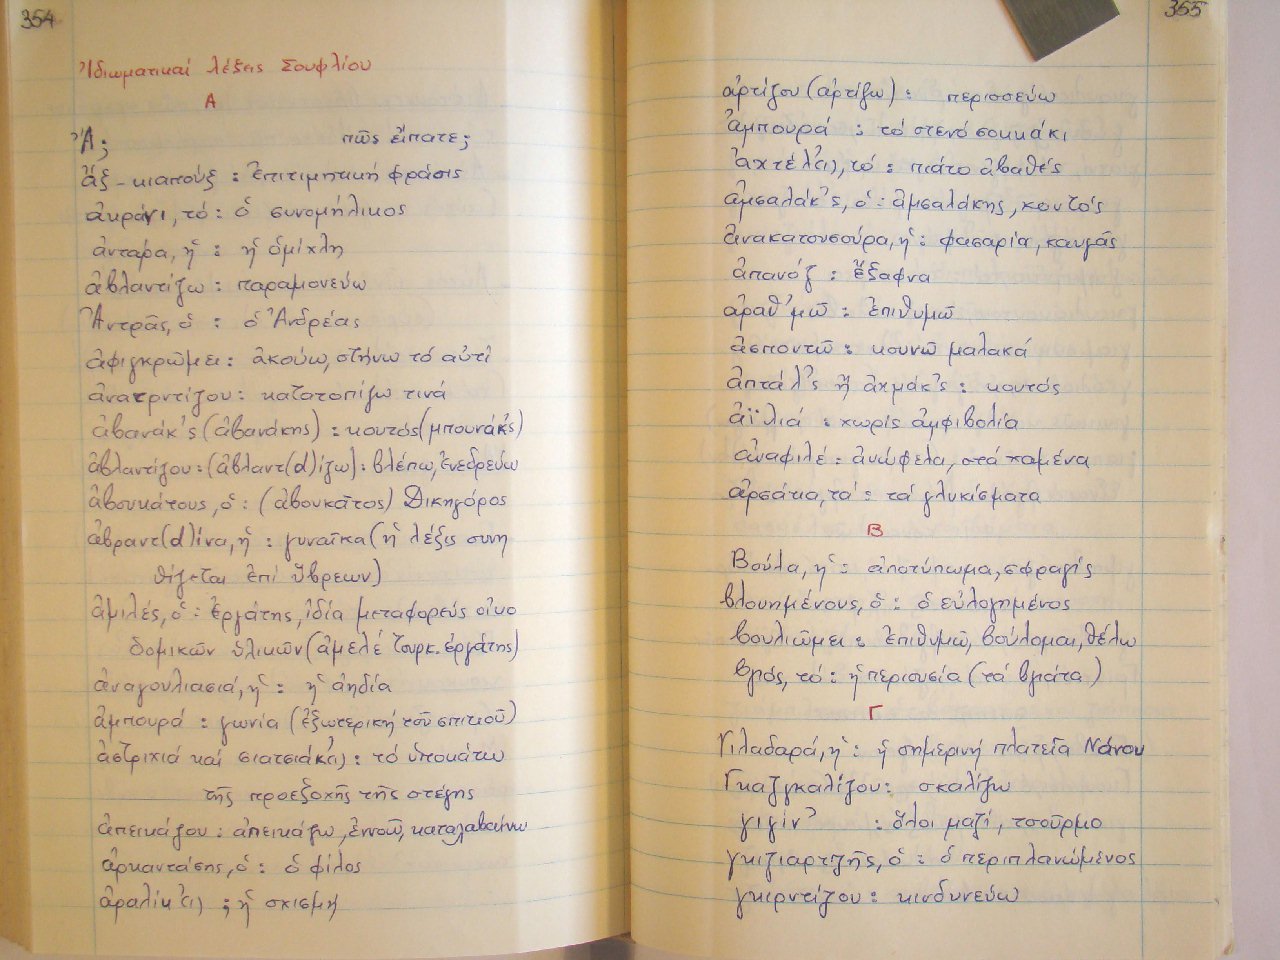 354
Ἰδιωματικαί λέξεις Σουφλίου
Α
Ἄ; πῶς εἴπατε;
ἄξ-κιαπούξ: ἐπιτιμητική φράσις
ἀκράνι, τό: ὁ συνομήλικος
ἀνταρα, ἡ: ἡ ὁμίχλη
ἀβλαντίζω: παραμονεύω
Ἀντρᾶς, ὁ: ὁ Ἀνδρέας
ἀφιγκρῶμει: ἀκούω, στήνω τό αὐτί
ἀνατρντίζου: κατατοπίζω τινά
ἀβανάκ'ς (ἀβανάκης): κουτός (μπουνάκ'ς)
ἀβλαντίζου: (ἀβλαντ(d)ίζω): βλέπω, ἐνεδρεύω
ἀβουκάτους, ὁ: (ἀβουκᾶτος) Δικηγόρος
ἀβραντ(d)ίνα, ἡ: γυναῖκα (ἡ λέξις συνη
θίζεται ἐπί ὕβρεων)
ἀμιλές, ὁ: ἐργάτης, ἰδία μεταφορεύς οἰκο
δομικῶν ὑλικῶν (ἀμελέ τουρκ. ἐργάτης)
ἀναγουλιασιά, ἡ: ἡ ἀηδία
ἀμπουρά: γωνία (ἐξωτερική τοῦ σπιτιοῦ)
ἀστριχιά καί σιατσιάκ(ι): τό ὑποκάτω
τῆς προεξοχῆς τῆς στέγης
ἀπεικάζου: ἀπεικάζω, ἐννοῶ, καταλαβαίνω
ἀρκαντάσης, ὁ: ὁ φίλος
ἀραλίκ'(ι); ἡ σχισμή
355
ἀρτίζου (ἀρτίζω): περισσεύω
ἀμπουρά: τό στενό σοκκάκι
ἀχτέλ'(ι), τό: πιάτο ἀβαθές
ἀμσαλάκ'ς, ὁ: ἀμσαλάκης, κοντός
ἀνακατουσούρα, ἡ: φασαρία, καυγᾶς
ἀπανόζ: ἔξαφνα
ἀραθ'μῶ: ἐπιθυμῶ
ἀσποντῶ: κουνῶ μαλακά
ἀπτάλ'ς ἤ ἀχμάκ'ς: κουτός
ἀϊλιά: χωρίς ἀμφιβολία
ἀναφιλέ: ἀνώφελα, στά χαμένα
ἀρσάκα, τά: τά γλυκίσματα
Β
Βούλα, ἡ: ἀποτύπωμα, σφραγίς
βλουημένους, ὁ: ὁ εὐλογημένος
βουλιῶμει: ἐπιθυμῶ, βούλομαι, θέλω
βρός, τό: ἡ περιουσία (τά βγιάτα)
Γ
Γιλαδαρά, ἡ: ἡ σημερινή πλατεῖα Νάνου
Γκαζγκαλίζου: σκαλίζω
γιγίν': ὅλοι μαζί, τσοῦρμο
γκιζιαρτζῆς, ὁ: ὁ περιπλανώμενος
γκιρντίζου: κινδυνεύω